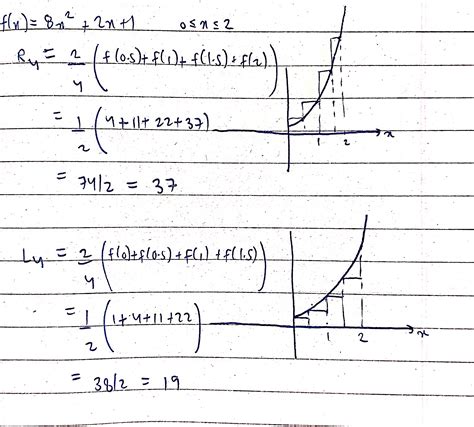 f(x) = 8x² + 2x + 1 0 ≤ x ≤ 2
R₄ = 2/4 (f(0.5) + f(1) + f(1.5) + f(2))
= 1/2 (4 + 11 + 22 + 37)
1 2 x
= 74/2 = 37
L₄ = 2/4 (f(0) + f(0.5) + f(1) + f(1.5))
= 1/2 (1 + 4 + 11 + 22)
1 2 x
= 38/2 = 19